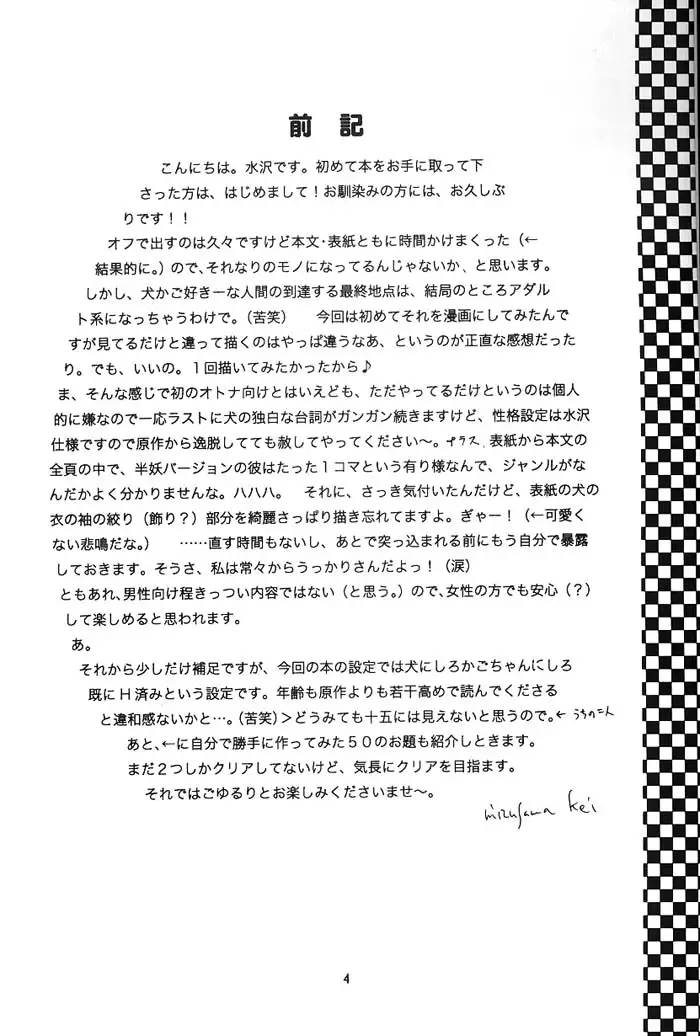 前 記
こんにちは。水沢です。初めて本をお手に取って下
さった方は、はじめまして！お馴染みの方には、お久しぶ
りです！！
オフで出すのは久々ですけど本文・表紙ともに時間かけまくった（←
結果的に。）ので、それなりのモノになってるんじゃないか、と思います。
しかし、犬かご好きーな人間の到達する最終地点は、結局のところアダル
ト系になっちゃうわけで。（苦笑）　今回は初めてそれを漫画にしてみたんで
すが見てるだけと違って描くのはやっぱ違うなあ、というのが正直な感想だった
り。でも、いいの。１回描いてみたかったから♪
ま、そんな感じで初のオトナ向けとはいえども、ただやってるだけというのは個人
的に嫌なので一応ラストに犬の独白な台詞がガンガン続きますけど、性格設定は水沢
仕様ですので原作から逸脱してても赦してやってください〜。プラス、表紙から本文の
全頁の中で、半妖バージョンの彼はたった１コマという有り様なんで、ジャンルがな
んだかよく分かりませんな。ハハハ。　それに、さっき気付いたんだけど、表紙の犬の
衣の袖の絞り（飾り？）部分を綺麗さっぱり描き忘れてますよ。ぎゃー！（←可愛く
ない悲鳴だな。）　……直す時間もないし、あとで突っ込まれる前にもう自分で暴露
しておきます。そうさ、私は常々からうっかりさんだよっ！（涙）
ともあれ、男性向け程きっつい内容ではない（と思う。）ので、女性の方でも安心（？）
して楽しめると思われます。
あ。
それから少しだけ補足ですが、今回の本の設定では犬にしろかごちゃんにしろ
既にＨ済みという設定です。年齢も原作よりも若干高めで読んでくださる
と違和感ないかと…。（苦笑）＞どうみても十五には見えないと思うので。←うちの二人
あと、←に自分で勝手に作ってみた５０のお題も紹介しときます。
まだ２つしかクリアしてないけど、気長にクリアを目指ます。
それではごゆるりとお楽しみくださいませ〜。
mizusawa kei
4